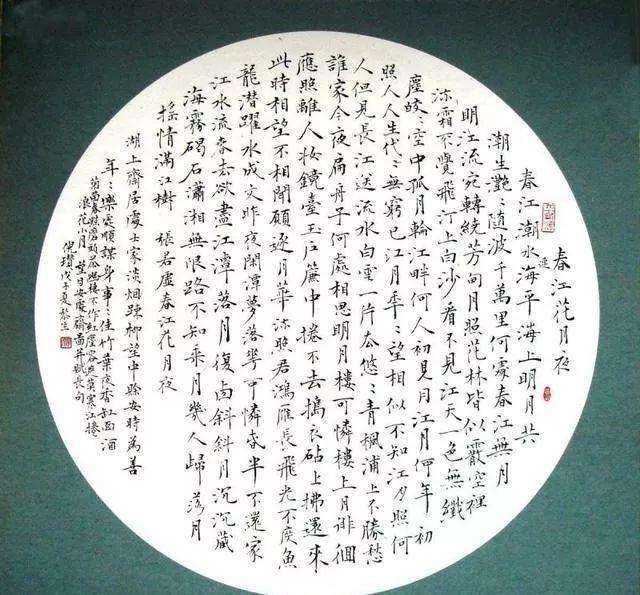 春江花月夜
春江潮水連海平海上明月共
潮生灩〻随波千萬里何處春江無月
明江流宛轉繞芳甸月照花林皆似霰空裡
流霜不覺飛汀上白沙看不見江天一色無纖
塵皎〻空中孤月輪江畔何人初見月江月何年初
照人人生代〻無窮已江月年〻望相似不知江月照何
人但見長江送流水白雲一片去悠〻青楓浦上不勝愁
誰家今夜扁舟子何處相思明月樓可憐樓上月徘徊
應照離人妝鏡臺玉户簾中捲不去搗衣砧上拂還來
此時相望不相聞願逐月華流照君鴻雁長飛光不度魚
龍潛躍水成文昨夜閑潭夢落花可憐春半不還家
江水流春去欲盡江潭落月復西斜斜月沉沉藏
海霧碣石瀟湘無限路不知乘月幾人歸落月
摇情滿江樹 張若虛春江花月夜
湖上齋居處士家淡烟疎柳望中賒安時為善
年〻樂處順謀身事〻佳竹葉夜香缸面酒
菊苗春點磨頭茶幽棲不作紅塵客遮莫寒江捲
浪花小月望日安處齋圖并賦長句
倪瓚 戊子夏